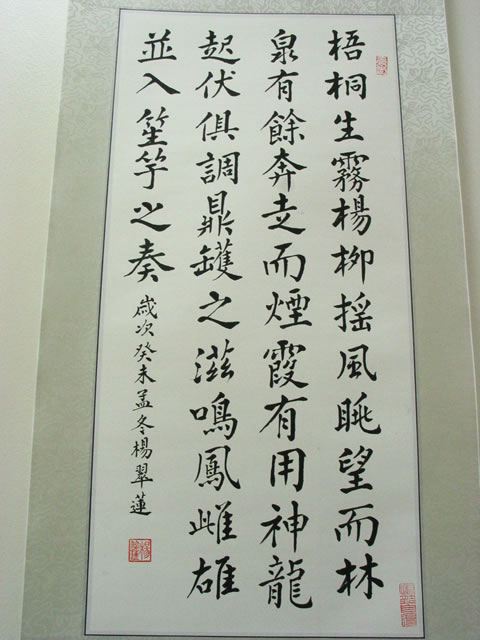 梧桐生霧楊柳搖風眺望而林
泉有餘奔走而煙霞有用神龍
起伏俱調鼎鑊之滋鳴鳳雌雄
並入笙竽之奏
歲次癸未孟冬楊翠蓮